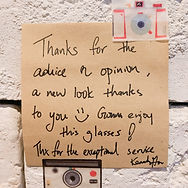 Thanks for the
advice & opinion,
a new look thanks
to you Gonna enjoy
this glasses!
Thx for the exceptional service